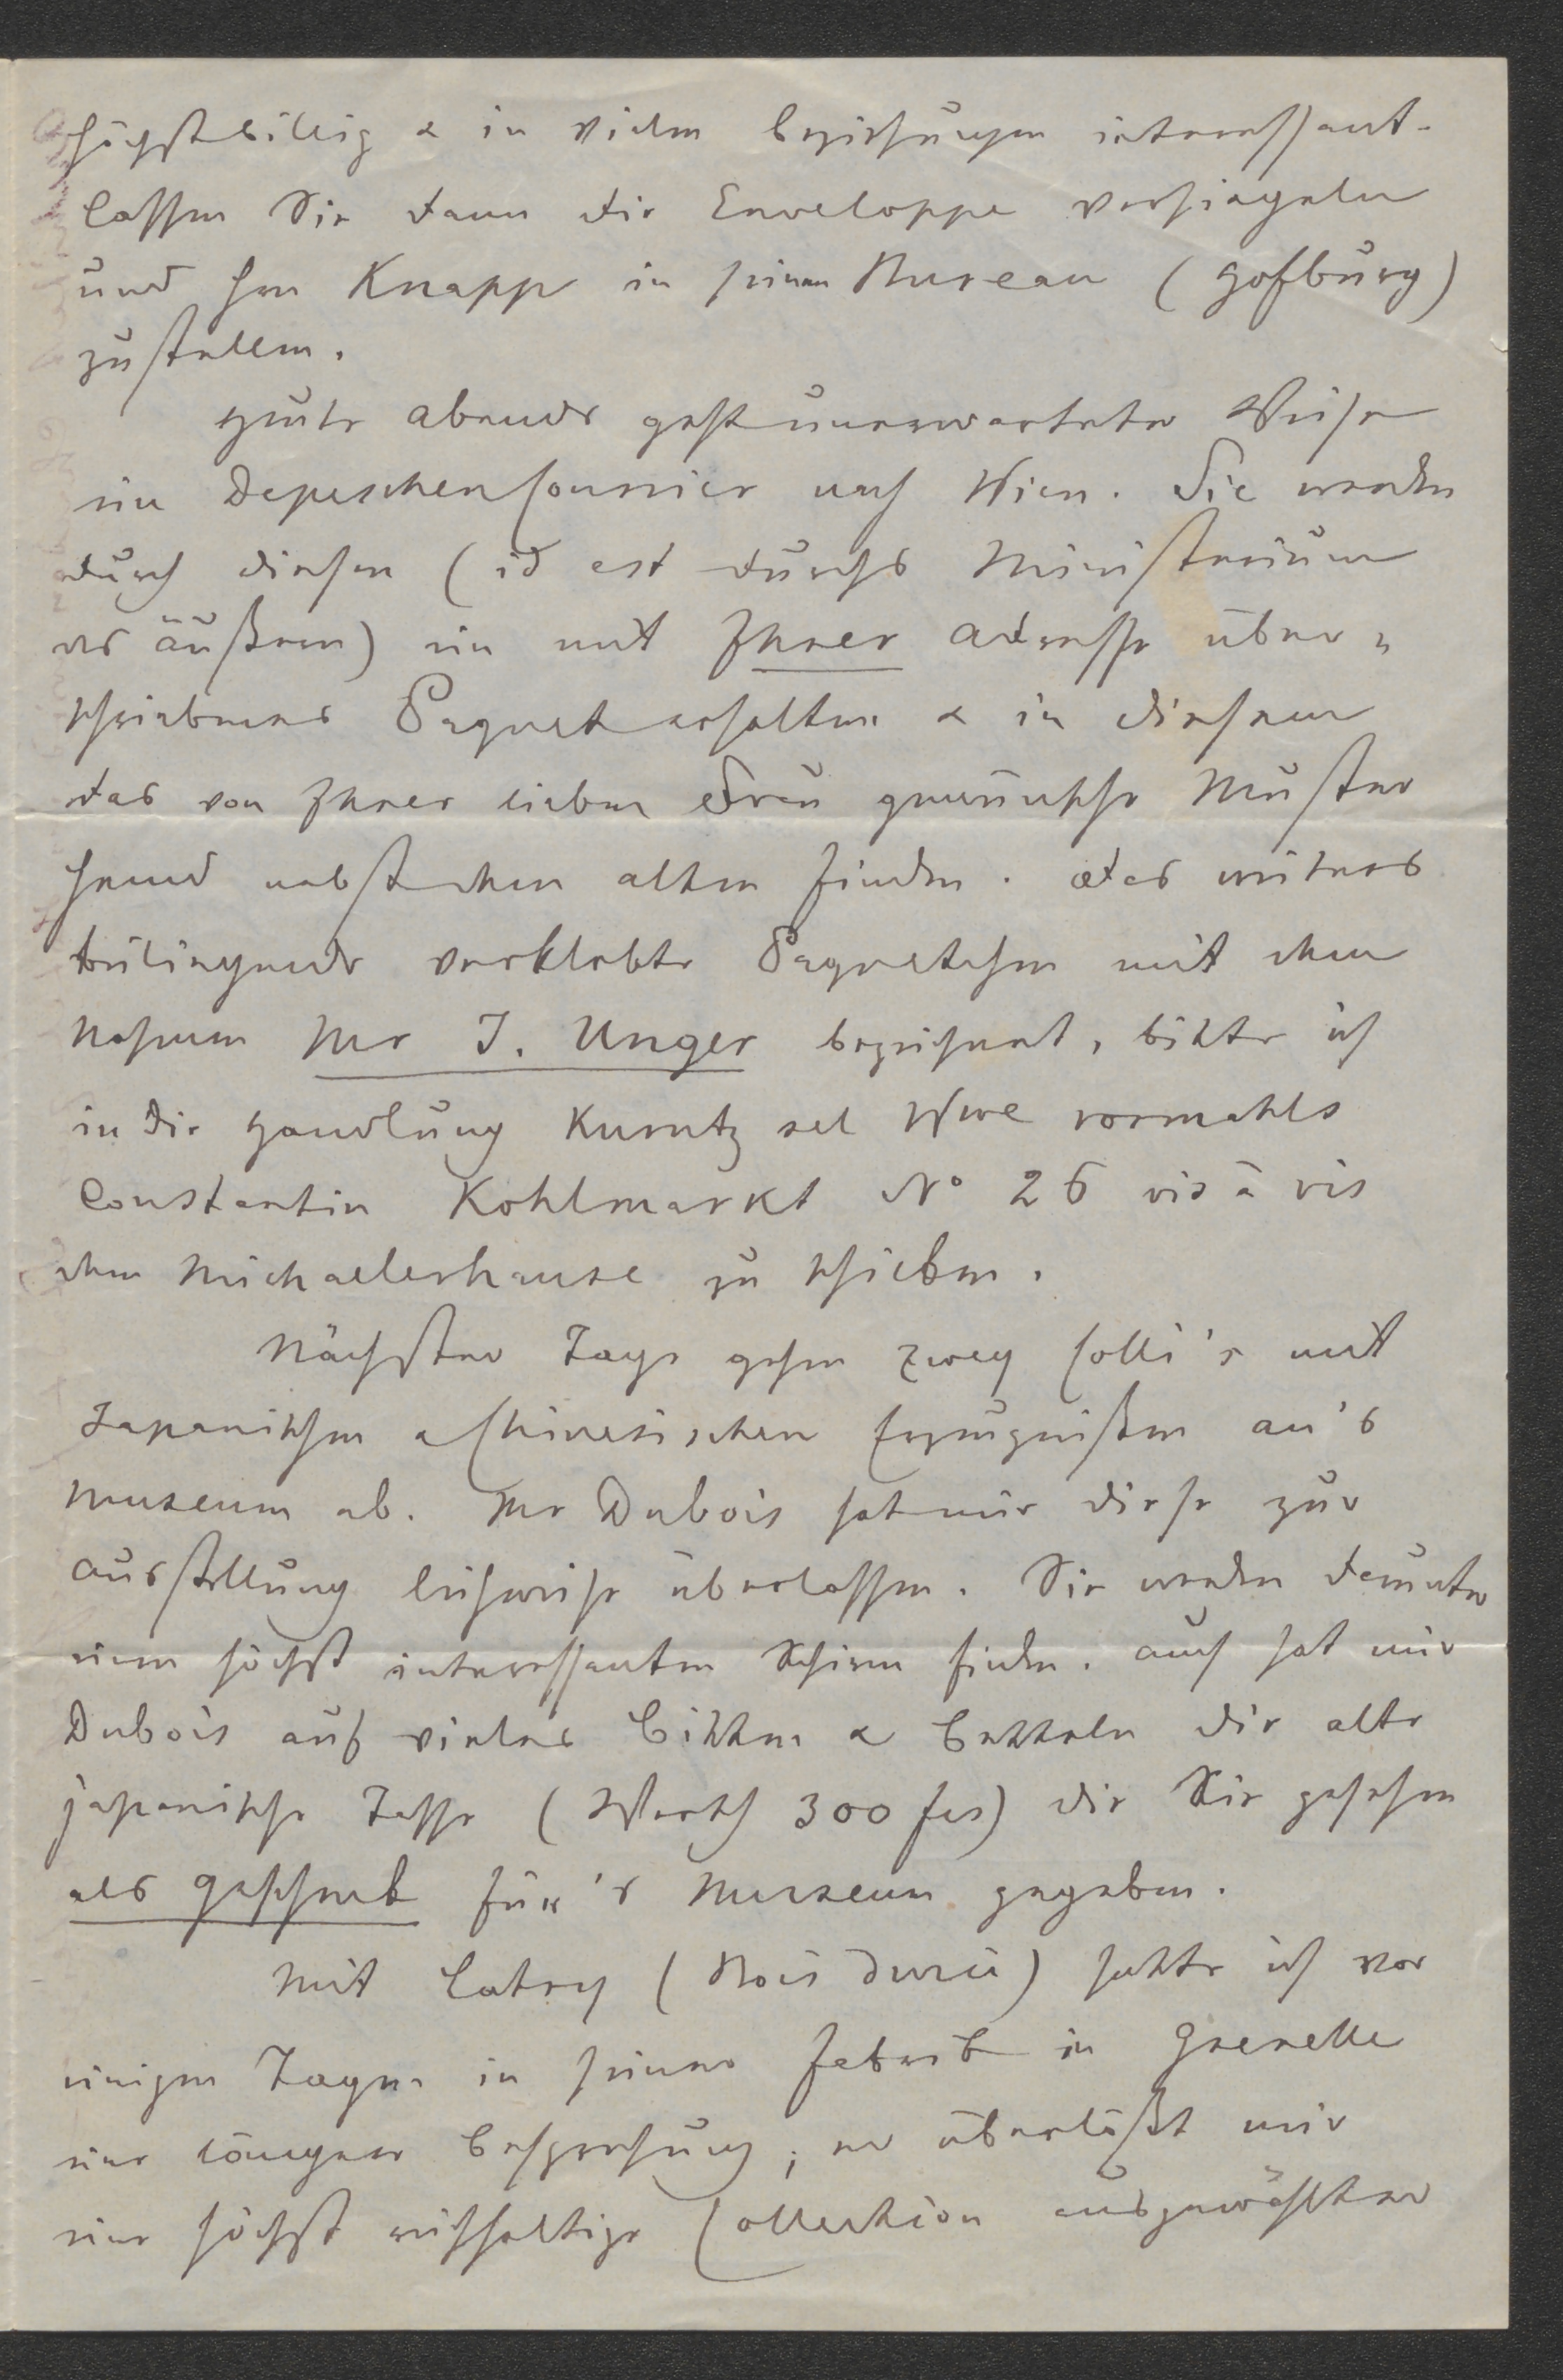 höchst billig & in vielen beziehungen interessant.
lassen Sie dann die Enveloppe versiegeln
und Hrn Knapp in seinem Bureau (Hofburg)
zustellen.
Heute abends geht unerwarteter Weise
ein Depeschencourrier nach Wien. Sie werden
durch diesen (id est durchs Ministerium
des äußern) ein mit Ihrer adresse über=
schriebenes Paquet erhalten & in diesem
das von Ihrer lieben Frau gewünschte Muster
Hemd nebst dem alten finden. das weiters
beiliegende verklebte Paquetchen mit dem
Nahmen Mr J. Unger bezeichnet, bitte ich
in die Handlung Kurntz sel Wwe vormahls
Constantin Kohlmarkt No 26 vis à vis
dem Michaelerhause zu schicken.
Nächster Tage gehen zwey Colli's mit
Japanischen & Chinesischen Erzeugnißen an's
Museum ab. Mr Dubois hat mir diese zur
ausstellung leihweise überlassen. Sie werden darunter
einen höchst interessanten Schirm finden. auch hat mir
Dubois auf vieles bitten & betteln die alte
japanische Tasse (Werth 300 fcs) die Sie gesehen
als geschenk für's Museum gegeben.
Mit Latry (Bois durci) hatte ich vor
einigen Tagen in seiner Fabrik in Grenelle
eine längere besprechung; er überläßt mir
eine höchst reichhaltige Collection ausgewählter